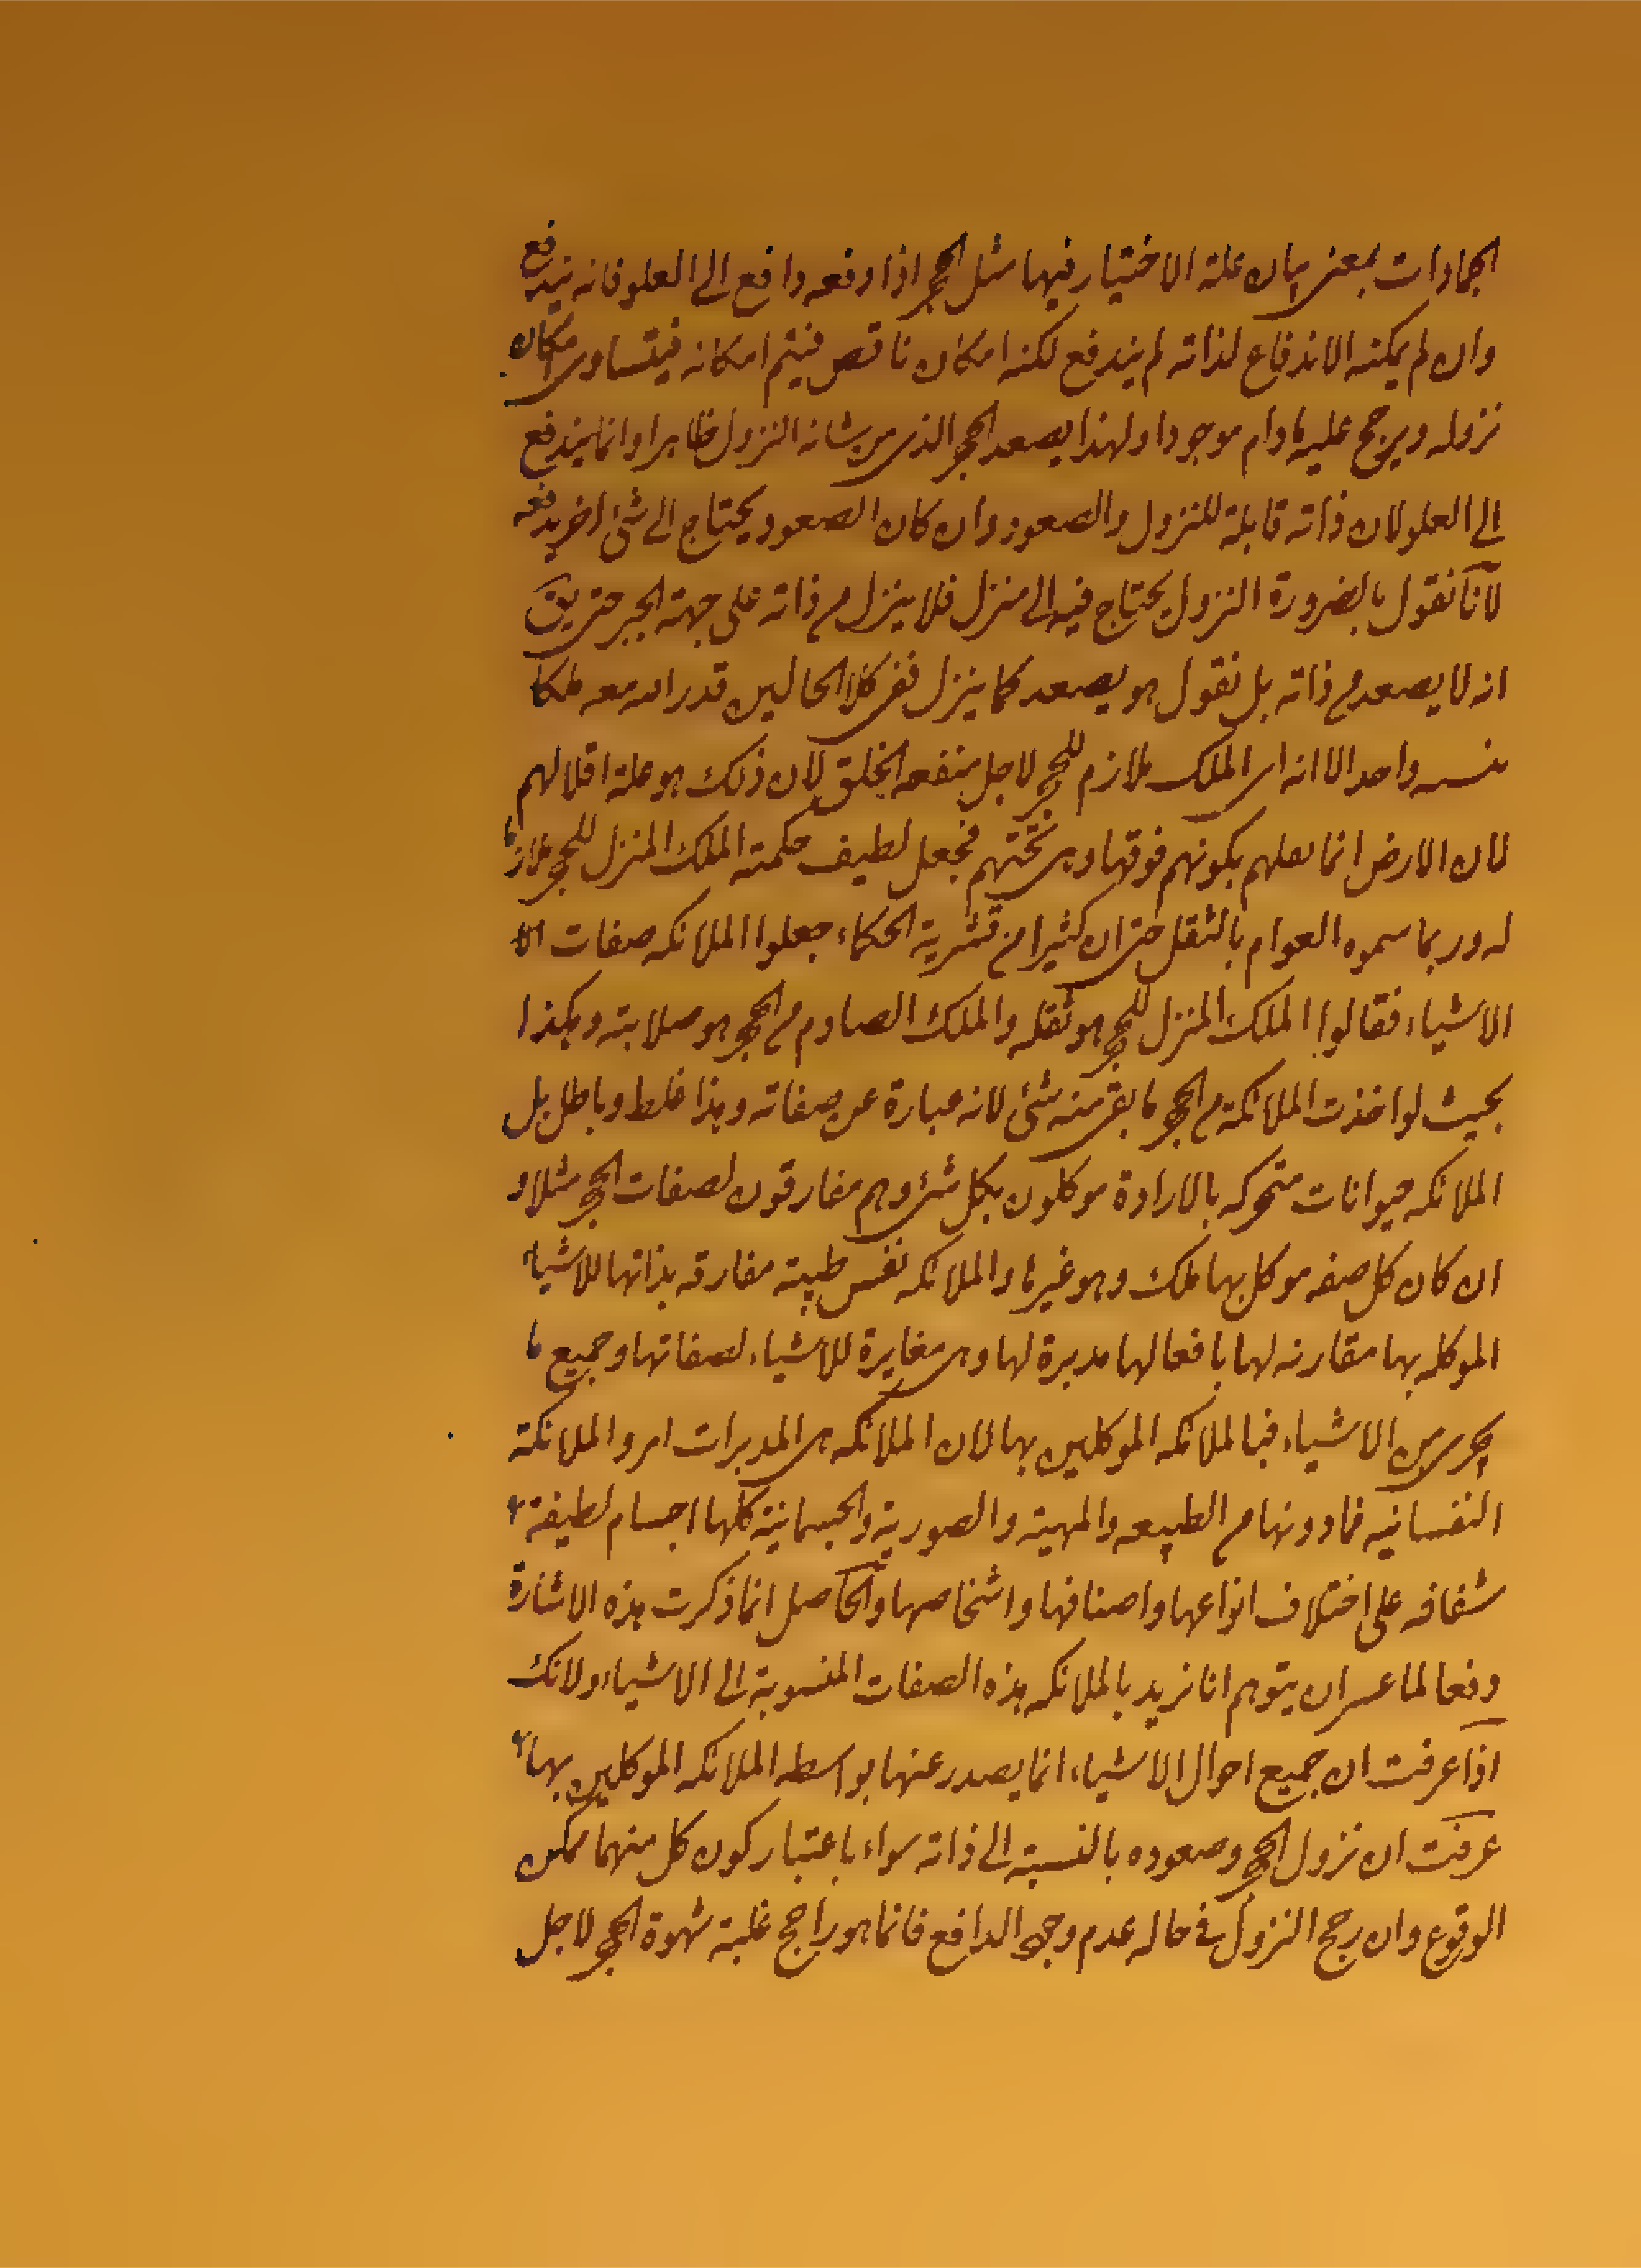 الجمادات بمعنى بيان علة الاختيار فيها مثل الحجر اذا دفعه دافع الى العلو فانه يندفع
وان لم يمكنه الاندفاع لذاته لم يندفع لكنه امكان ناقص فيتم امكانه فيتساوى امكان
نزوله ويرجح عليه مادام موجودا ولهذا يصعد الحجر الذى من شانه النزول ظاهرا وانما يندفع
الى العلو لان ذاته قابلة للنزول والصعود وان كان الصعود يحتاج الى شئ اخر يدفعه
لانا نقول بالضرورة النزول يحتاج فيه الى منزل فلا ينزل من ذاته على جهة الجبر حتى يق
انه لا يصعد من ذاته بل نقول هو يصعد كما ينزل ففى كلا الحالين قدر الله معه ملكا
واحد الا انه اى الملك ملازم للحجر لاجل منفعه الخلق لان ذلك هو علة اقلالهم
لان الارض انما تقلهم بكونهم فوقها وهى تحتهم فجعل لطيف حكمته الملك المنزل للحجر ملازما
له وربما سموه العوام بالثقل حتى ان كثيرا من قشرية الحكماء جعلوا الملائكه صفات
الاشياء فقالوا الملك المنزل للحجر هو ثقله والملك الصادم من الحجر هو صلابته وهكذا
بحيث لو اخذت الملائكة من الحجر ما بقى منه شئ لانه عبارة عن صفاته وهذا غلط وباطل بل
الملائكه حيوانات متحركه بالارادة موكلون بكل شئ وهم مفارقون لصفات الحجر مثلا و
ان كان كل صفه موكل بها ملك وهو غيرها والملائكه نفس طيبة مفارقه بذاتها للاشياء
الموكله بها مقارنه لها بافعالها مدبرة لها وهى مغايرة للاشياء لصفاتها وجميع ما
يجرى من الاشياء فبالملائكه الموكلين بها لان الملائكه هى المدبرات امرو الملائكة
النفسانيه فما دونها من الطبيعه والمهية والصورية والجسمانية كلها اجسام لطيفة
شفافه على اختلاف انواعها واصنافها واشخاصها والحاصل انما ذكرت هذه الاشارة
دفعا لما عسى ان يتوهم انا نريد بالملائكه هذه الصفات المنسوبة الى الاشياء ولانك
اذا عرفت ان جميع احوال الاشياء انما يصدر عنها بواسطه الملائكه الموكلين بها
عرفت ان نزول الحجر وصعوده بالنسبة الى ذاته سواء باعتبار كون كل منهما ممكن
الوقوع وان رجح النزول فى حاله عدم وجود الدافع فانما هو راجح غلبة شهوة الحجر لاجل